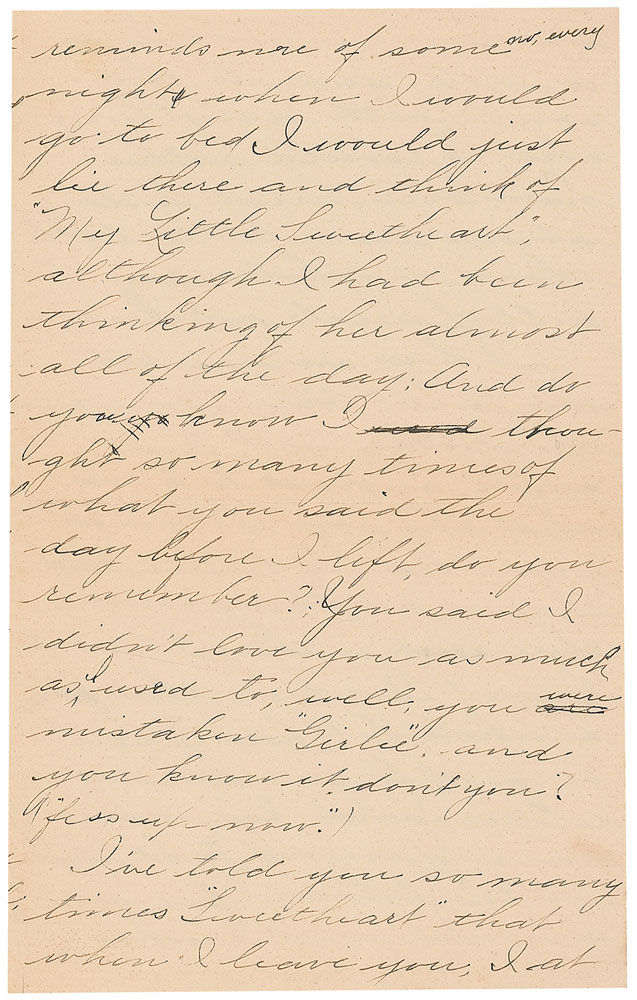 reminds me of some no, every
night when I would
go to bed I would just
lie there and think of
"My Little Sweetheart",
although I had been
thinking of her almost
all of the day; And do
you know I used thou-
ght so many times of
what you said the
day before I left, do you
remember? You said I
didn't love you as much
as I used to, well, you were are
mistaken "Girlie". and
you know it. don't you?
("fess up now.")
I've told you so many
times "Sweetheart" that
when I leave you, I at